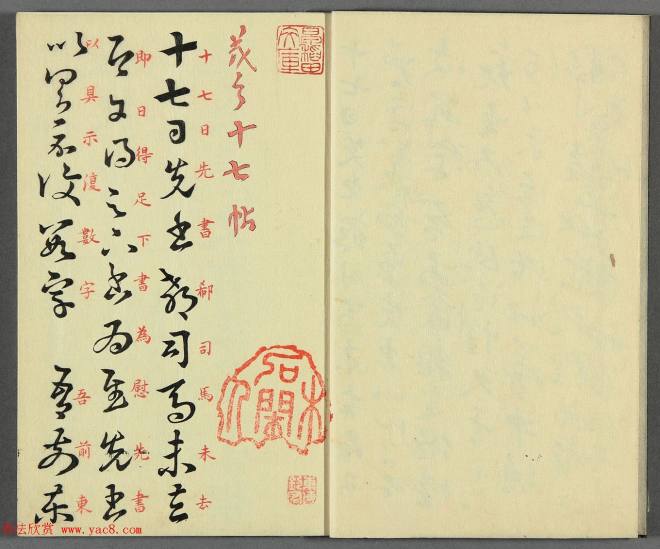 十七帖
十七日先書郗司馬未去
十七日先書郗司馬未去
即日得足下書為慰先書
即日得足下書為慰先書
以具示復數字 吾前東
以具示復數字 吾前東
法欣赏 www.yac8.com